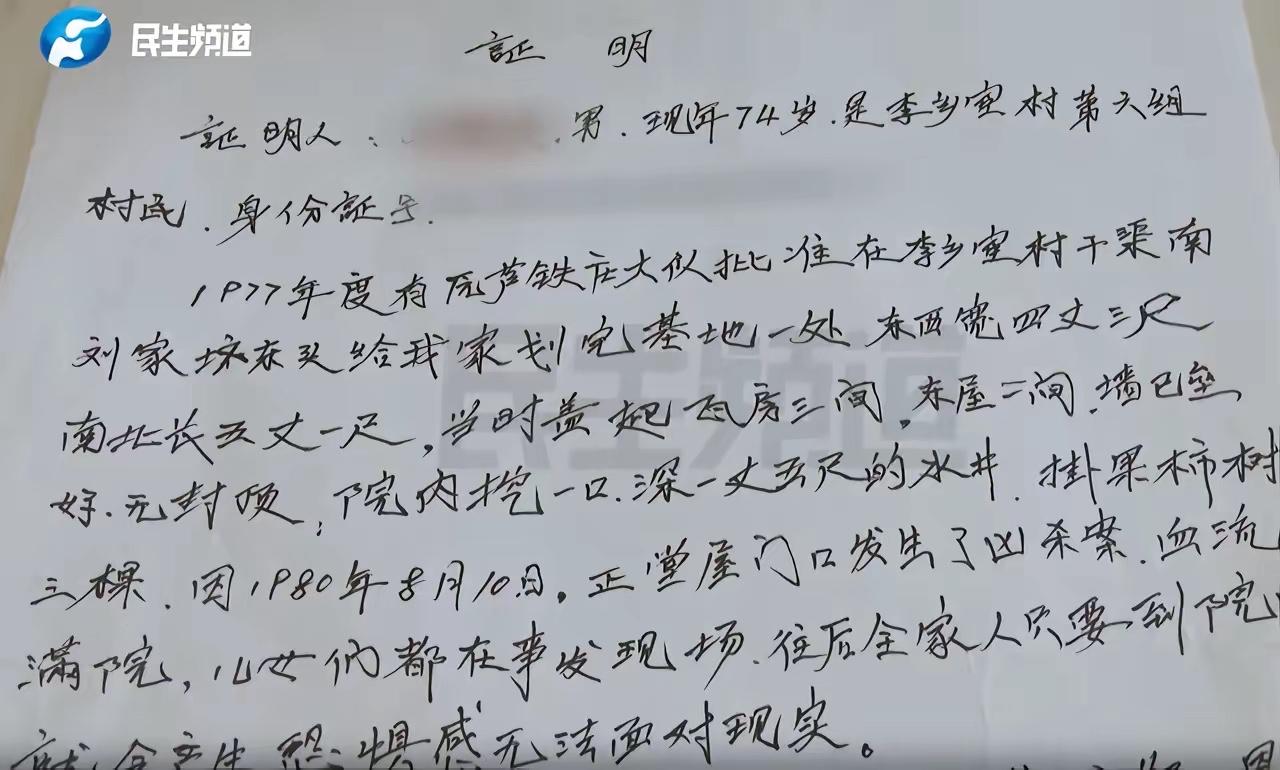 民生频道
証 明
証明人: 男.现年74岁.是李乡宦村第六组
村民.身份証号.
1977年度有原芦铁庄大队批准在李乡宦村干渠南
刘家坟东头给我家划宅基地一处 东西宽四丈三尺
南北长五丈一尺,当时盖起瓦房三间,东屋二间.墙已垒
好.无封顶;院内挖一口.深一丈五尺的水井.掛果柿树
三棵.因1980年8月10日.正堂屋门口发生了凶杀案.血流
满院,儿女们都在事发现场.往后全家人只要到院
就会产生恐惧感无法面对现实。
民生频道